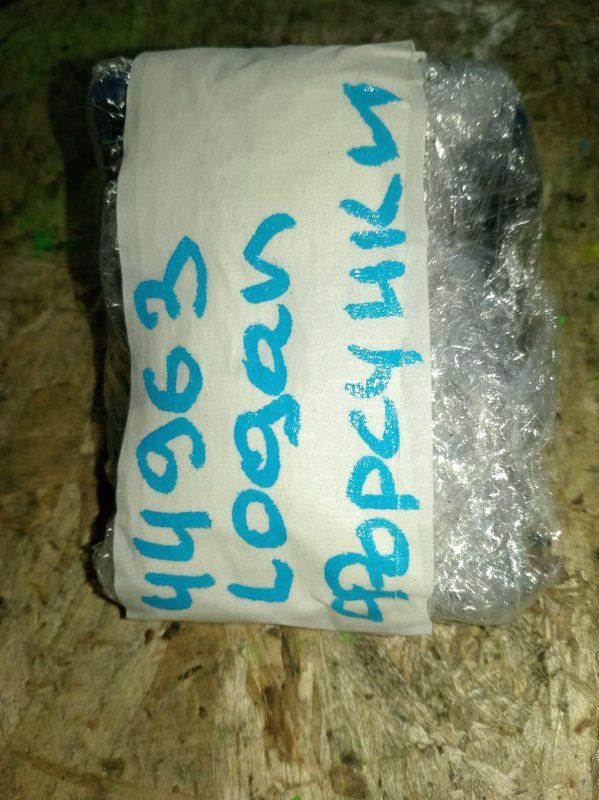 44963
Logan
Форсунки